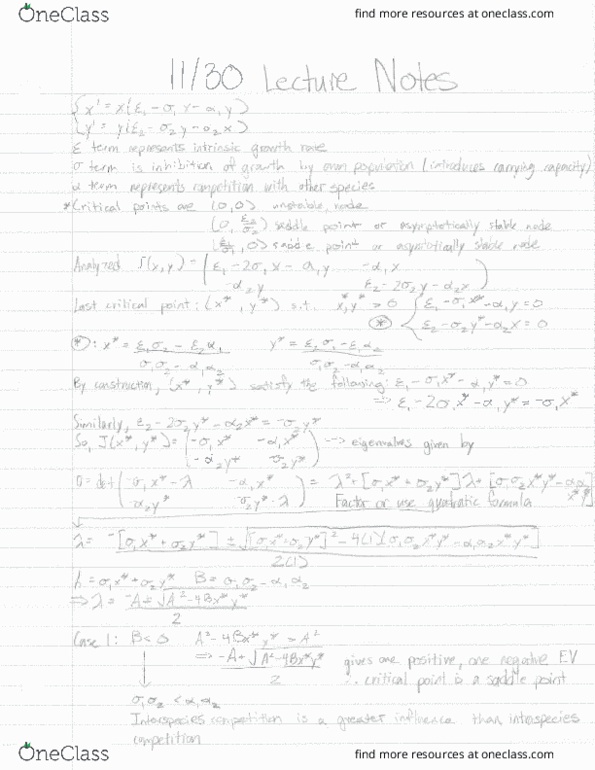 OneClass
find more resources at oneclass.com
11/30 Lecture Notes
{x' = x(ε₁ - σ₁x - α₁y)
{y' = y(ε₂ - σ₂y - α₂x)
ε term represents intrinsic growth rate
σ term is inhibition of growth by own population (introduces carrying capacity)
α term represents competition with other species
*Critical points are (0,0) unstable node
(0, ε₂/σ₂) saddle point or asymptotically stable node
(ε₁/σ₁, 0) saddle point or asymtotically stable node
Analyzed J(x,y) = (ε₁ - 2σ₁x - α₁y    -α₁x
-α₂y    ε₂ - 2σ₂y - α₂x)
Last critical point: (x*, y*) s.t. x*, y* > 0 {ε₁ - σ₁x* - α₁y = 0
(*) {ε₂ - σ₂y* - α₂x = 0
(*): x* = (ε₁σ₂ - ε₂α₁)/(σ₁σ₂ - α₁α₂)    y* = (ε₂σ₁ - ε₁α₂)/(σ₁σ₂ - α₁α₂)
By construction, (x*, y*) satisfy the following: ε₁ - σ₁x* - α₁y* = 0
⇒ ε₁ - 2σ₁x* - α₁y* = -σ₁x*
Similarly, ε₂ - 2σ₂y* - α₂x* = -σ₂y*
So, J(x*, y*) = (-σ₁x*    -α₁x*
-α₂y*    -σ₂y*) --> eigenvalues given by
0 = det(-σ₁x* - λ    -α₁x*    = λ² + [σ₁x* + σ₂y*]λ + [σ₁σ₂x*y* - α₁α₂x*y*]
-α₂y*    -σ₂y* - λ)    Factor or use quadratic formula
λ = (-[σ₁x* + σ₂y*] ± √([σ₁x* + σ₂y*]² - 4(1)(σ₁σ₂x*y* - α₁α₂x*y*)))/2(1)
A = σ₁x* + σ₂y*    B = σ₁σ₂ - α₁α₂
⇒ λ = (-A ± √(A² - 4Bx*y*))/2
Case 1: B < 0    A² - 4Bx*y* > A²
⇒ (-A ± √(A² - 4Bx*y*))/2 gives one positive, one negative EV
∴ critical point is a saddle point
↓
σ₁σ₂ < α₁α₂
Interspecies competition is a greater influence than intraspecies
competition
OneClass
find more resources at oneclass.com